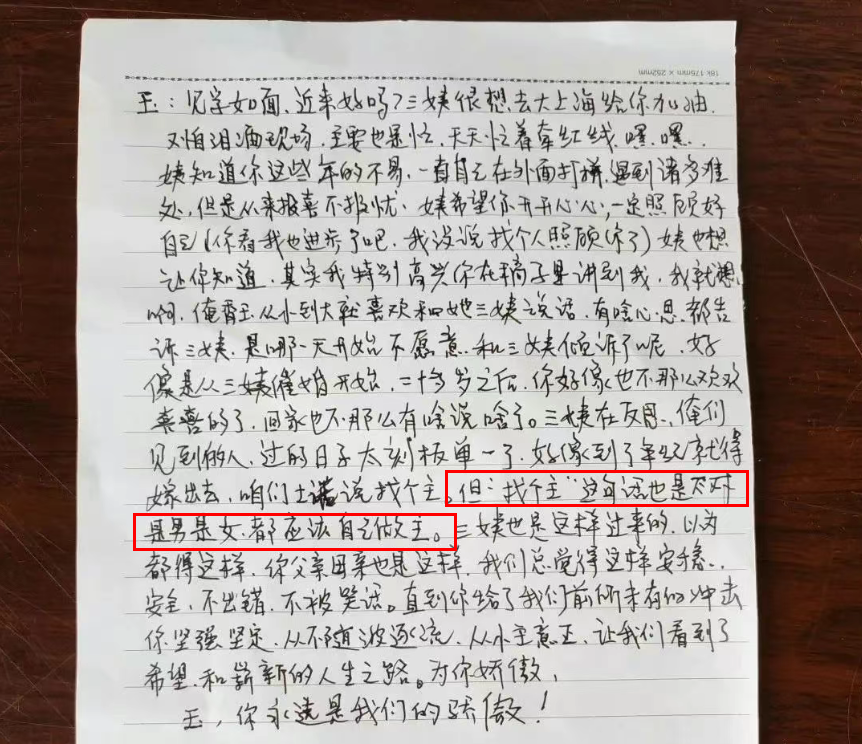 16k 176mm × 252mm
玉：见字如面、近来好吗？三姨很想去大上海给你加油
又怕泪洒现场，主要也是忙，天天忙着牵红线，嘿嘿..
姨知道你这些年的不易，一直自己在外面打拼，遇到诸多难
处，但是从来报喜不报忧，姨希望你开开心心，一定照顾好
自己（你看我也进步了吧，我没说找个人照顾你了）姨也想
让你知道，其实我特别高兴你在稿子里讲到我，我就想
啊，俺香玉从小到大就喜欢和她三姨说话，有啥心思都告
诉三姨，是哪一天开始不愿意和三姨倾诉了呢，好
像是从三姨催婚开始，二十多岁之后，你好像也不那么欢欢
喜喜的了，回家也不那么有啥说啥了。三姨在反思，俺们
见到的人，过的日子太刻板单一了，好像到了年纪就得
嫁出去，咱们土话说找个主。但“找个主”这句话也是不对
是男是女，都应该自己做主。三姨也是这样过来的，以为
都得这样，你父亲母亲也是这样，我们总觉得这样安稳..
安全，不出错，不被笑话。直到你给了我们前所未有的冲击
你坚强坚定，从不随波逐流，从小主意正，让我们看到了
希望和崭新的人生之路。为你骄傲，
玉，你永远是我们的骄傲！